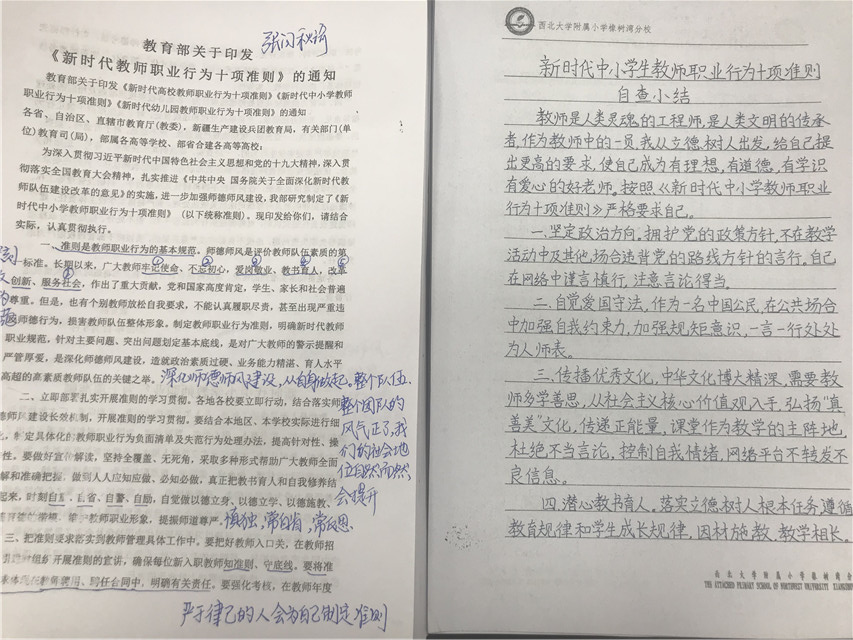 教育部关于印发
《新时代教师职业行为十项准则》的通知
教育部关于印发《新时代高校教师职业行为十项准则》《新时代中小学教师
职业行为十项准则》《新时代幼儿园教师职业行为十项准则》的通知
各省、自治区、直辖市教育厅(教委)，新疆生产建设兵团教育局，有关部门(单
位)教育司(局)，部属各高等学校、部省合建各高等学校：
为深入贯彻习近平新时代中国特色社会主义思想和党的十九大精神，深入贯
彻落实全国教育大会精神，扎实推进《中共中央 国务院关于全面深化新时代教
师队伍建设改革的意见》的实施，进一步加强师德师风建设，我部研究制定了《新
时代中小学教师职业行为十项准则》（以下统称准则）。现印发给你们，请结合
实际，认真贯彻执行。
一、准则是教师职业行为的基本规范。师德师风是评价教师队伍素质的第
一标准。长期以来，广大教师牢记使命、不忘初心，爱岗敬业、教书育人，改革
创新、服务社会，作出了重大贡献，党和国家高度肯定，学生、家长和社会普遍
尊重。但是，也有个别教师放松自我要求，不能认真履职尽责，甚至出现严重违
师德行为，损害教师队伍整体形象。制定教师职业行为准则，明确新时代教师
职业规范，针对主要问题、突出问题划定基本底线，是对广大教师的警示提醒和
严管厚爱，是深化师德师风建设，造就政治素质过硬、业务能力精湛、育人水平
高超的高素质教师队伍的关键之举。
深化师德师风建设，从自身做起。整个队伍
整个团队的
风气正了，我
们的社会地
位自然而然
会提升
二、立即部署扎实开展准则的学习贯彻。各地各校要立即行动，结合落实师
德师风建设长效机制，开展准则的学习贯彻。要结合本地区、本学校实际进行细
化，制定具体化的教师职业行为负面清单及失范行为处理办法，提高针对性、操
性。要做好宣传解读，坚持全覆盖、无死角，采取多种形式帮助广大教师全面
解和准确把握，做到人人应知应做、必知必做，真正把教书育人和自我修养结
起来，时刻自重、自省、自警、自励，自觉做以德立身、以德立学、以德施教、
教师职业形象，提振师道尊严。
慎独，常自省，常反思
三、把准则要求落实到教师管理具体工作中。要把好教师入口关，在教师招
开展准则的宣讲，确保每位新入职教师知准则、守底线。要将准
聘用、聘任合同中，明确有关责任。要强化考核，在教师年度
严于律己的人会为自己制定准则
西北大学附属小学橡树湾分校
新时代中小学生教师职业行为十项准则
自查小结
教师是人类灵魂的工程师，是人类文明的传承
者，作为教师中的一员，我从立德树人出发，给自己提
出更高的要求，使自己成为有理想，有道德，有学识
有爱心的好老师，按照《新时代中小学教师职业
行为十项准则》严格要求自己。
一、坚定政治方向。拥护党的政策方针，不在教学
活动中及其他场合违背党的路线方针的言行。自己
在网络中谨言慎行，注意言论得当。
二、自觉爱国守法，作为一名中国公民，在公共场合
中加强自我约束力，加强规矩意识，一言一行处处
为人师表。
三、传播优秀文化，中华文化博大精深，需要教
师多学善思，从社会主义核心价值观入手，弘扬“真
善美”文化，传递正能量，课堂作为教学的主阵地，
杜绝不当言论，控制自我情绪，网络平台不转发不
良信息。
四、潜心教书育人。落实立德树人根本任务遵循
教育规律和学生成长规律，因材施教，教学相长。
西北大学附属小学橡树湾分
THE ATTACHED PRIMARY SCHOOL OF NORTHWEST UNIVERSITY